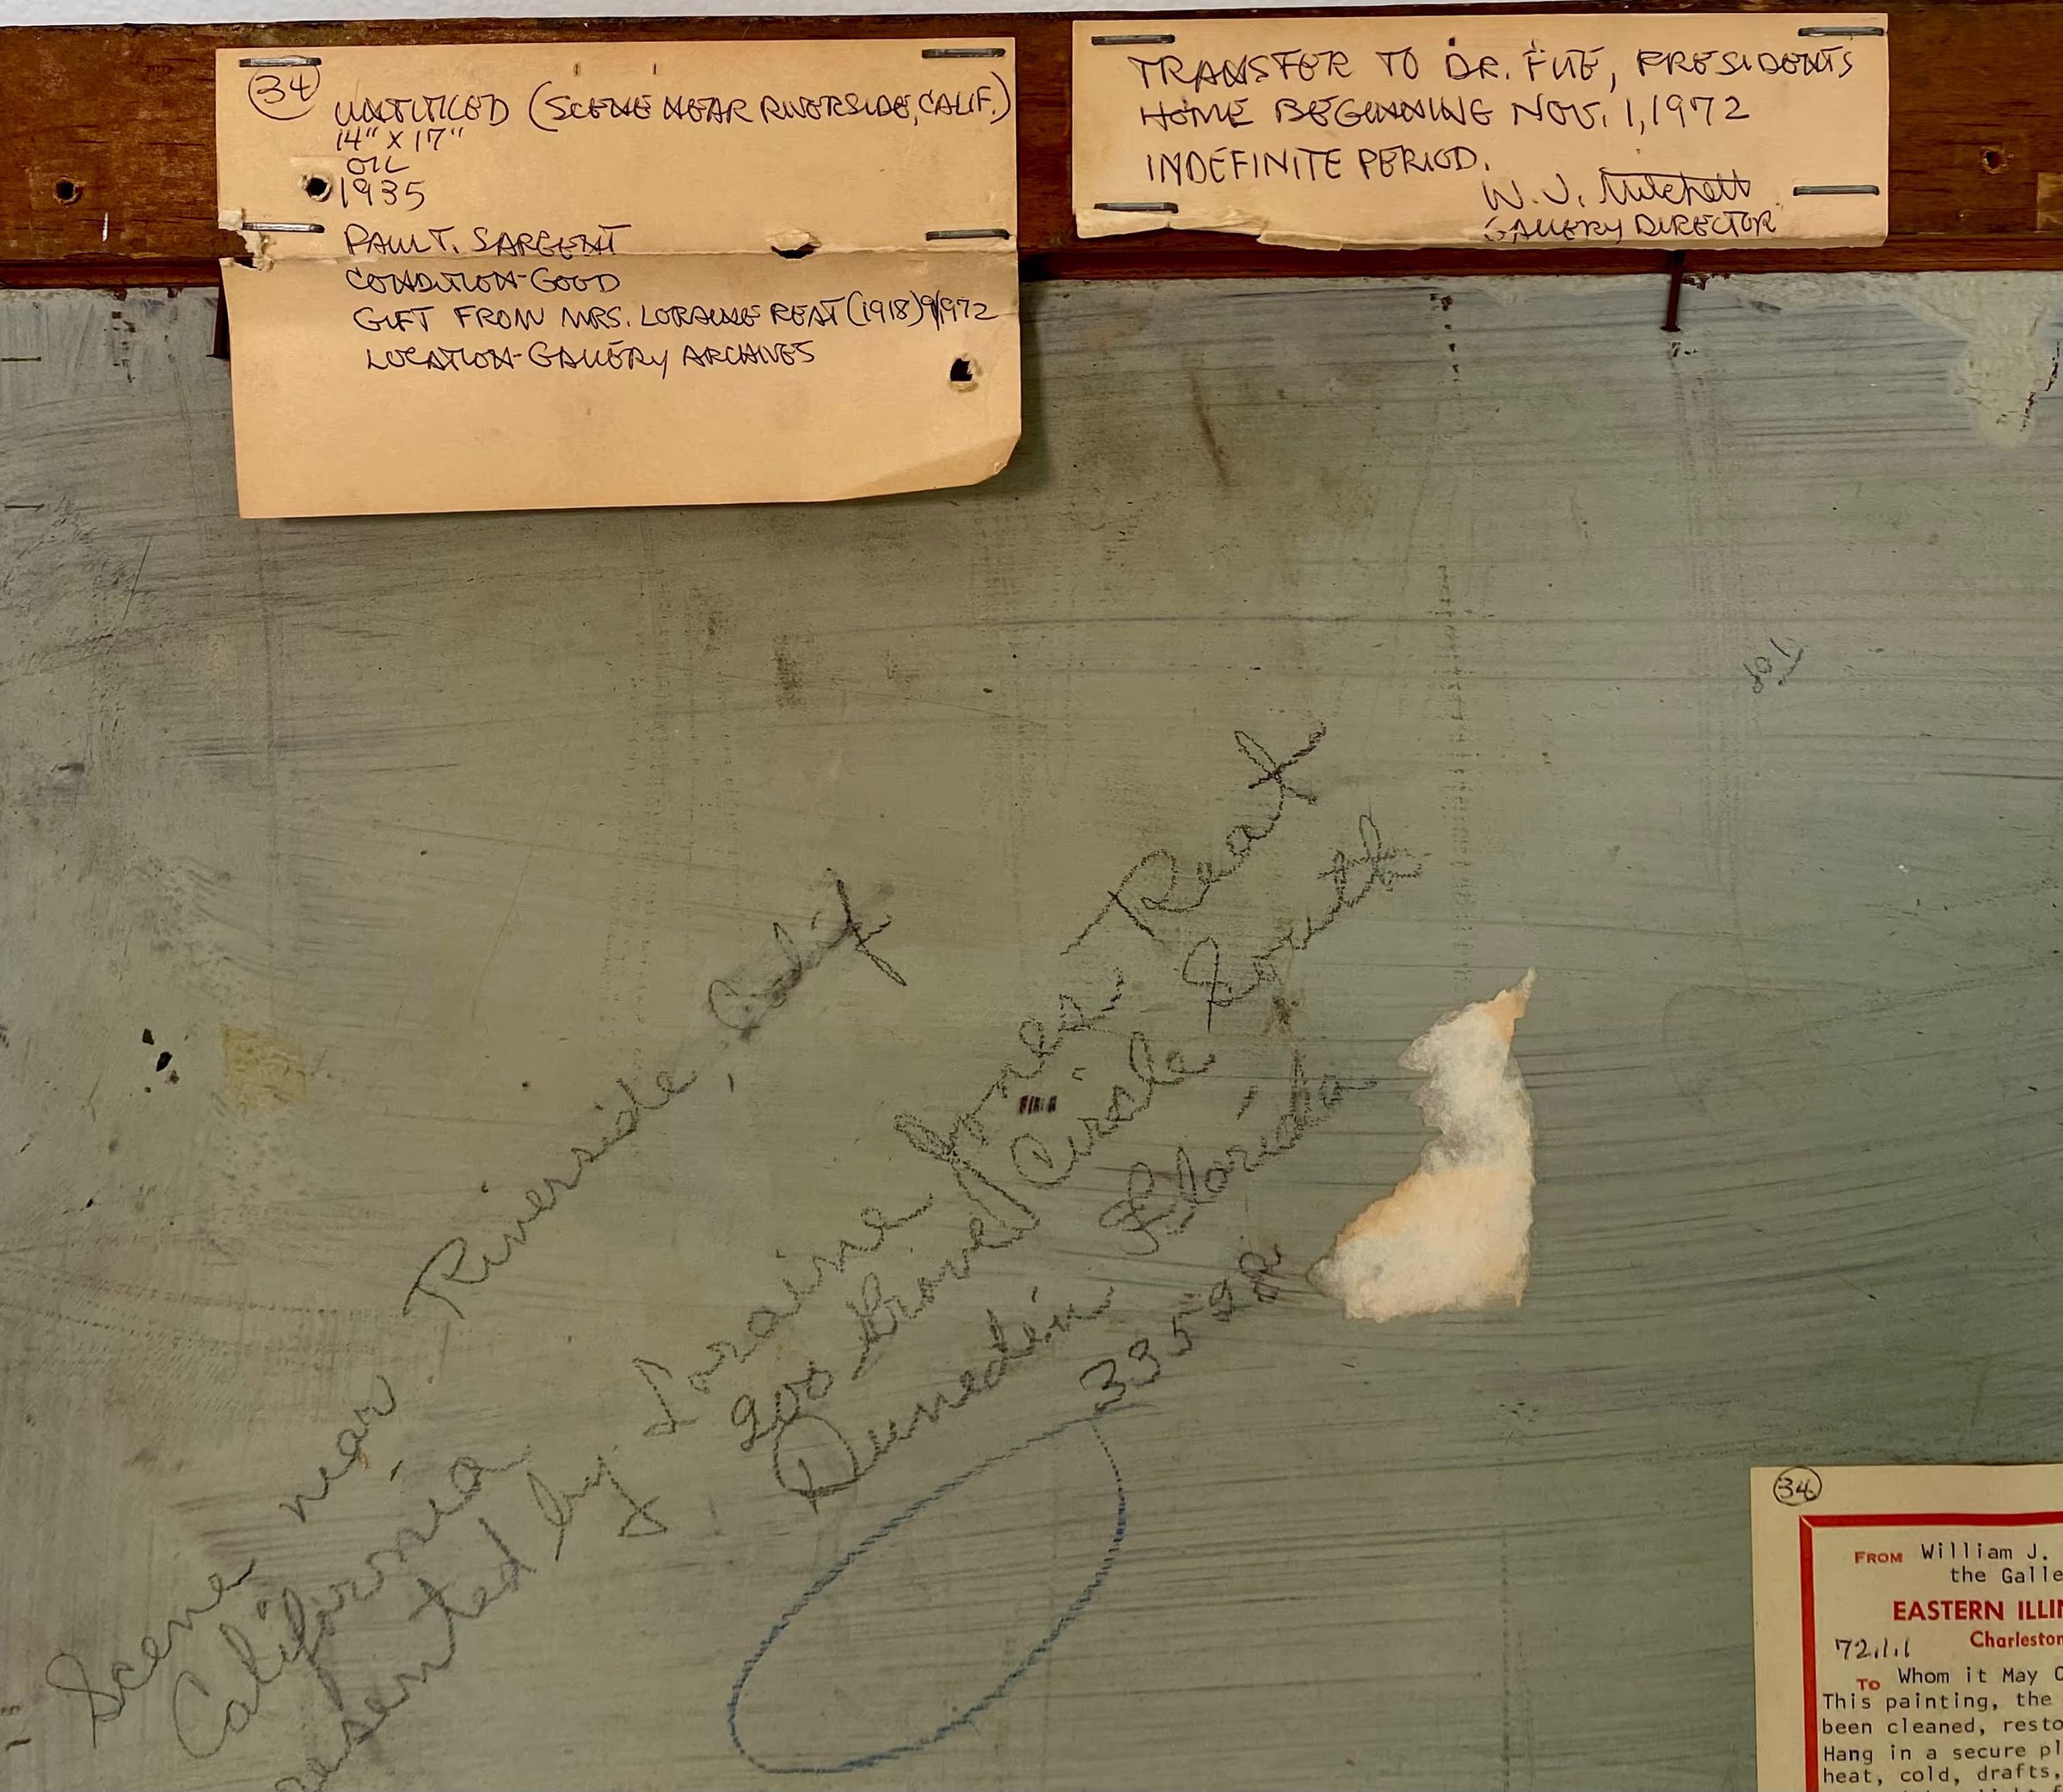 34
UNTITLED (SCENE NEAR RIVERSIDE, CALIF.)
14" X 17"
OIL
1935
PAUL T. SARGENT
CONDITION-GOOD
GIFT FROM MRS. LORAINE REAT (1918) 9/1972
LOCATION-GALLERY ARCHIVES
TRANSFER TO DR. FITE, PRESIDENTS
HOME BEGINNING NOV. 1, 1972
INDEFINITE PERIOD.
W. J. Mitchell
GALLERY DIRECTOR
Scene near Riverside, Calif
California
resented by Loraine Jones Reat
200 Grove Circle South
Dunedin Florida
33528
34
FROM William J.
the Galle
EASTERN ILLIN
Charleston
72.1.1
To Whom it May
This painting, the
been cleaned, resto
Hang in a secure pl
heat, cold, drafts,